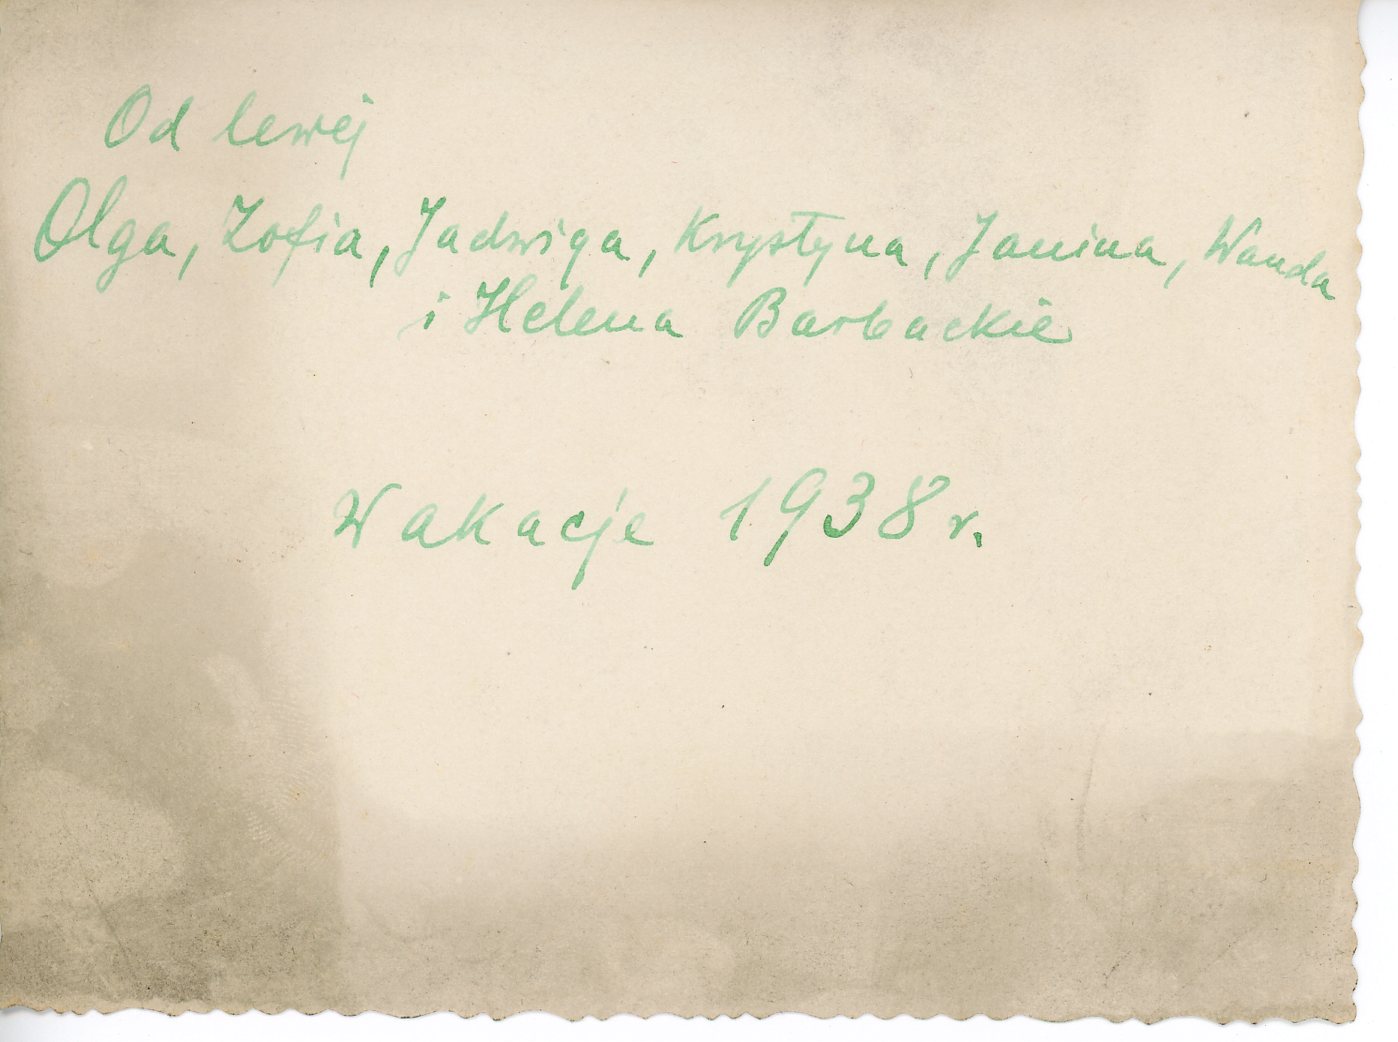 Od lewej
Olga, Zofia, Jadwiga, Krystyna, Janina, Wanda
i Helena Barbackie
Wakacje 1938 r.